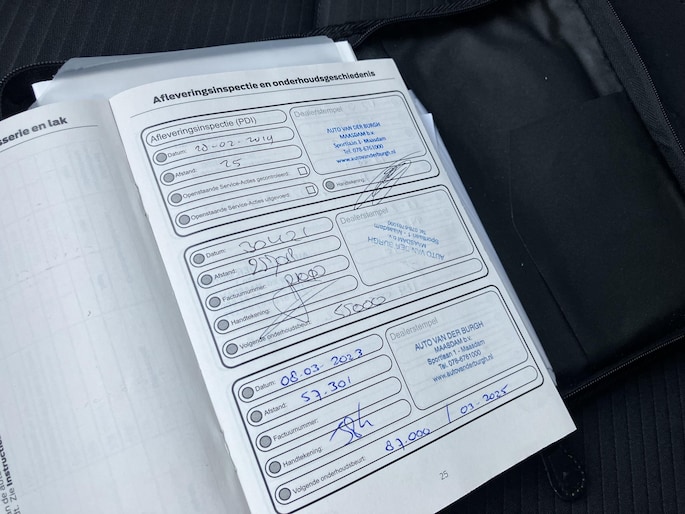 sserie en lak
Afleveringsinspectie en onderhoudsgeschiedenis
Afleveringsinspectie (PDI)
Datum: 20-02-2019
Afstand: 25
Openstaande Service-Acties gecontroleerd:
Openstaande Service-Acties uitgevoerd:
Dealerstempel
AUTO VAN DER BURGH
MAASDAM b.v.
Sportlaan 1 - Maasdam
Tel. 078-6761000
www.autovanderburgh.nl
Handtekening:
Datum: 30421
Afstand:
Factuurnummer:
Handtekening:
Volgende onderhoudsbeurt: 55000
Dealerstempel
AUTO VAN DER BURGH
MAASDAM b.v.
Sportlaan 1 - Maasdam
Tel. 078-6761000
Datum: 08-03-2023
Afstand: 57.301
Factuurnummer:
Handtekening:
Volgende onderhoudsbeurt: 87.000 / 03-2025
Dealerstempel
AUTO VAN DER BURGH
MAASDAM b.v.
Sportlaan 1 - Maasdam
Tel. 078-6761000
www.autovanderburgh.nl
25